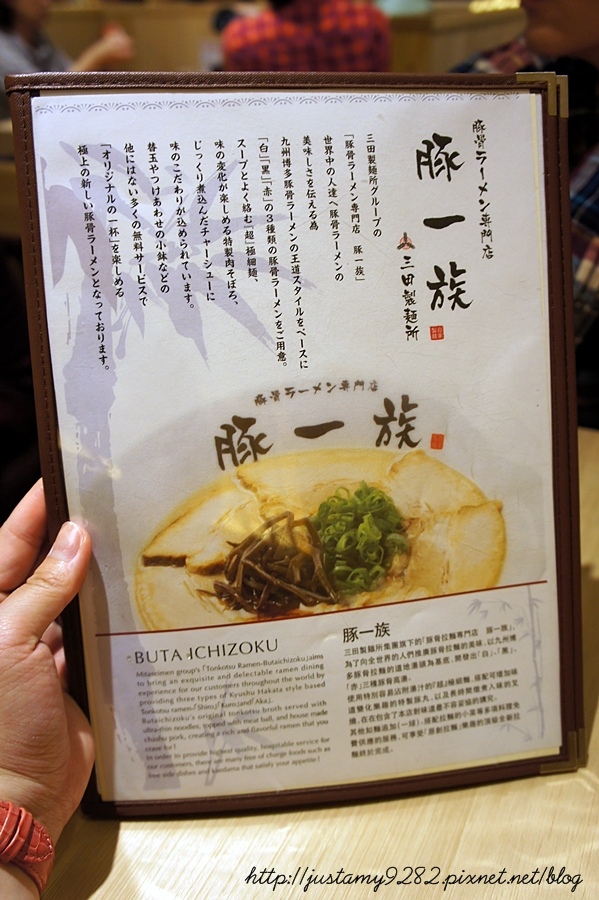 豚骨ラーメン専門店
豚一族
三田製麺所
三田製麺所グループの
「豚骨ラーメン専門店 豚一族」
世界中の人達へ豚骨ラーメンの
美味しさを伝える為
九州博多豚骨ラーメンの王道スタイルをベースに
「白」「黒」「赤」の3種類の豚骨ラーメンをご用意。
スープとよく絡む『超』極細麺、
味の変化が楽しめる特製肉そぼろ、
じっくり煮込んだチャーシューに
味のこだわりが込められています。
替玉やつけあわせの小鉢などの
他にはない多くの無料サービスで
「オリジナルの一杯」を楽しめる
極上の新しい豚骨ラーメンとなっております。
豚骨ラーメン専門店
豚一族
BUTA-ICHIZOKU
Mitaseimen group's「Tonkotsu Ramen-Butaichizoku」aims
to bring an exquisite and delectable ramen dining
experience for our customers throughout the world by
providing three types of Kyushu Hakata style based
Tonkotsu ramen-「Shiro」「Kuro」and「Aka」.
Butaichizoku's original tonkotsu broth served with
ultra-thin noodles, topped with meat ball, and house made
chashu pork, creating a rich and flavorful ramen that you
crave for!
In order to provide highest quality, hospitable service for
our customers, there are many free of charge foods such as
free side dishes and kaedama that satisfy your appetite!
豚一族
三田製麺所集團旗下的「豚骨拉麵專門店 豚一族」、
為了向全世界的人們推廣豚骨拉麵的美味，以九州博
多豚骨拉麵的道地湯頭為基底，開發出「白」、「黑」、
「赤」三種豚骨高湯。
使用特別容易沾附湯汁的『超』極細麵、搭配可增加味
道變化樂趣的特製豚丸、以及長時間燉煮入味的叉
燒，在在包含了本店對味道最不容妥協的講究。
其他如麵追加(一球)、搭配拉麵的小菜等多項料理免
費供應的服務，可享受「原創拉麵」樂趣的頂級全新拉
麵終於完成。
http://justamy9282.pixnet.net/blog